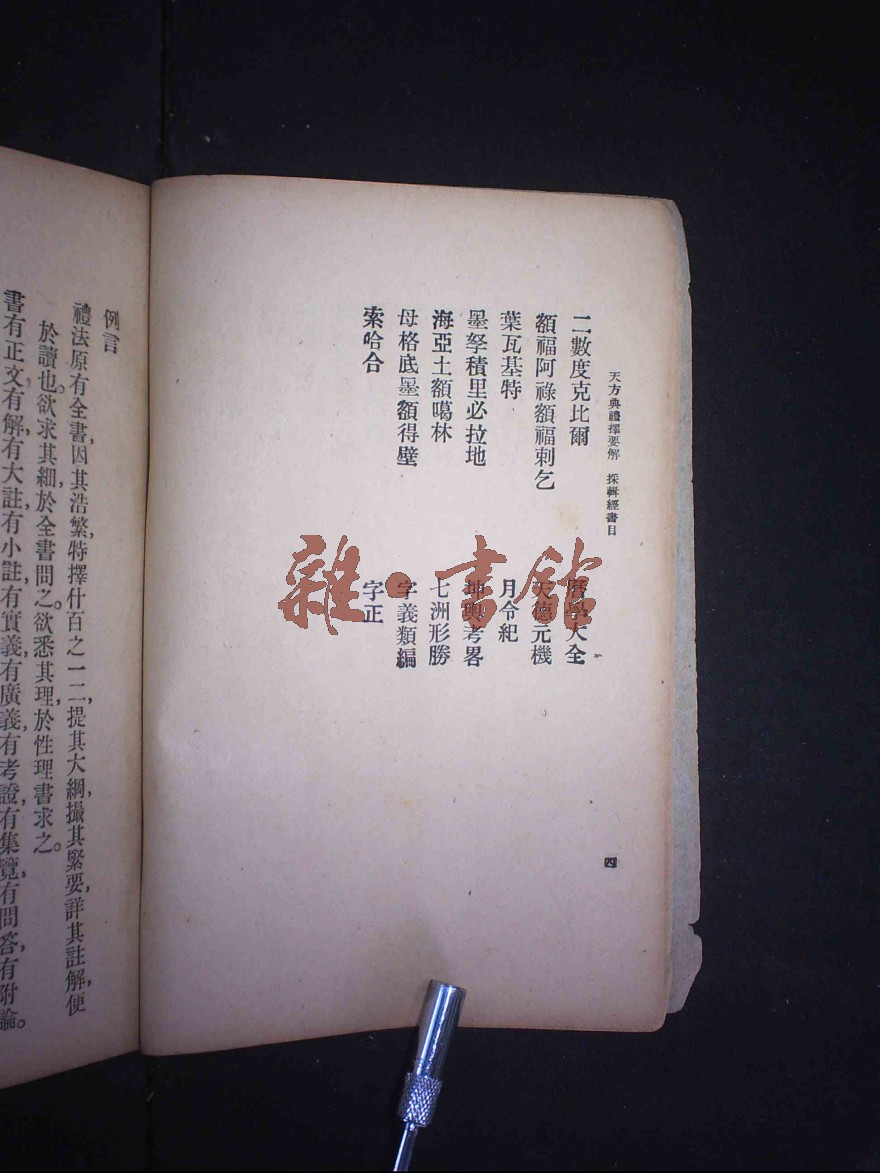 天方典禮擇要解　採輯經書目
二數度克比爾　曆學大全
額福阿祿額福剌乞　天德元機
葉瓦基特　月令紀
墨拏積里必拉地　坤輿考畧
海亞土額噶林　七洲形勝
母格底墨額得壁　字義類編
索哈合　字正
四
例言
禮法原有全書,因其浩繁,特擇什百之一二,提其大綱,撮其緊要,詳其註解,便
於讀也。欲求其細,於全書問之。欲悉其理,於性理書求之。
書有正文,有解,有大註,有小註,有實義,有廣義,有考證,有集覽,有問答,有附論。
雜·書館